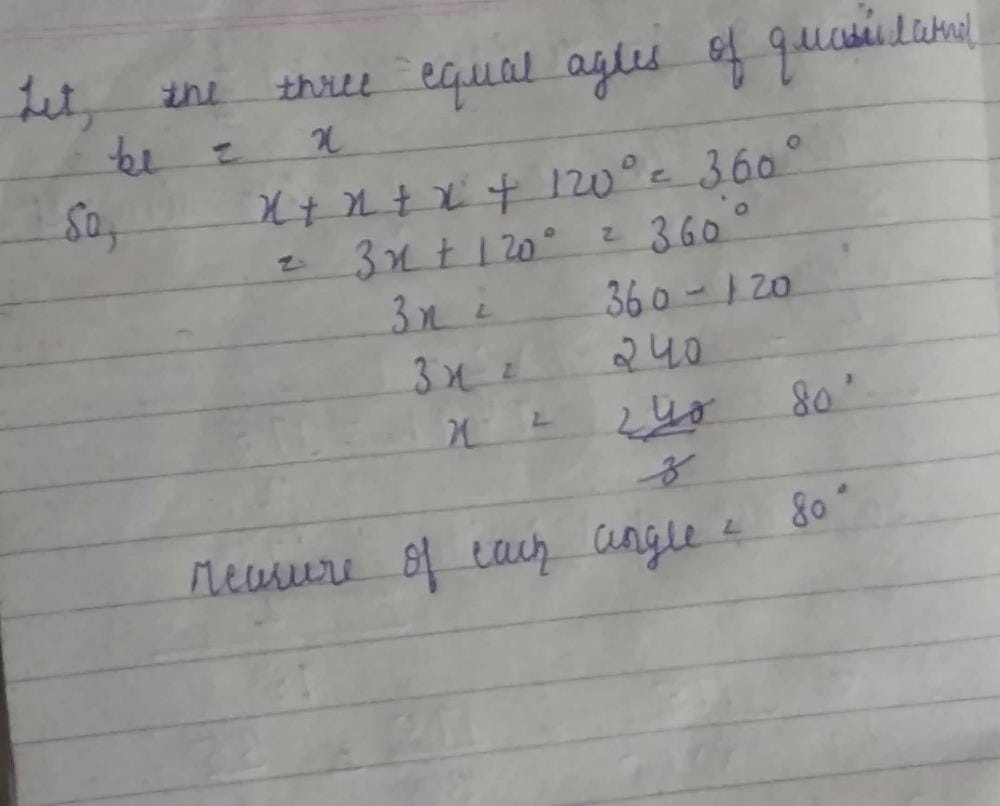 Let, the three equal agles of quadilateral
be = x
So, x + x + x + 120° = 360°
= 3x + 120° = 360°
3x = 360 - 120
3x = 240
x = 240 80°
3
Measure of each angle = 80°